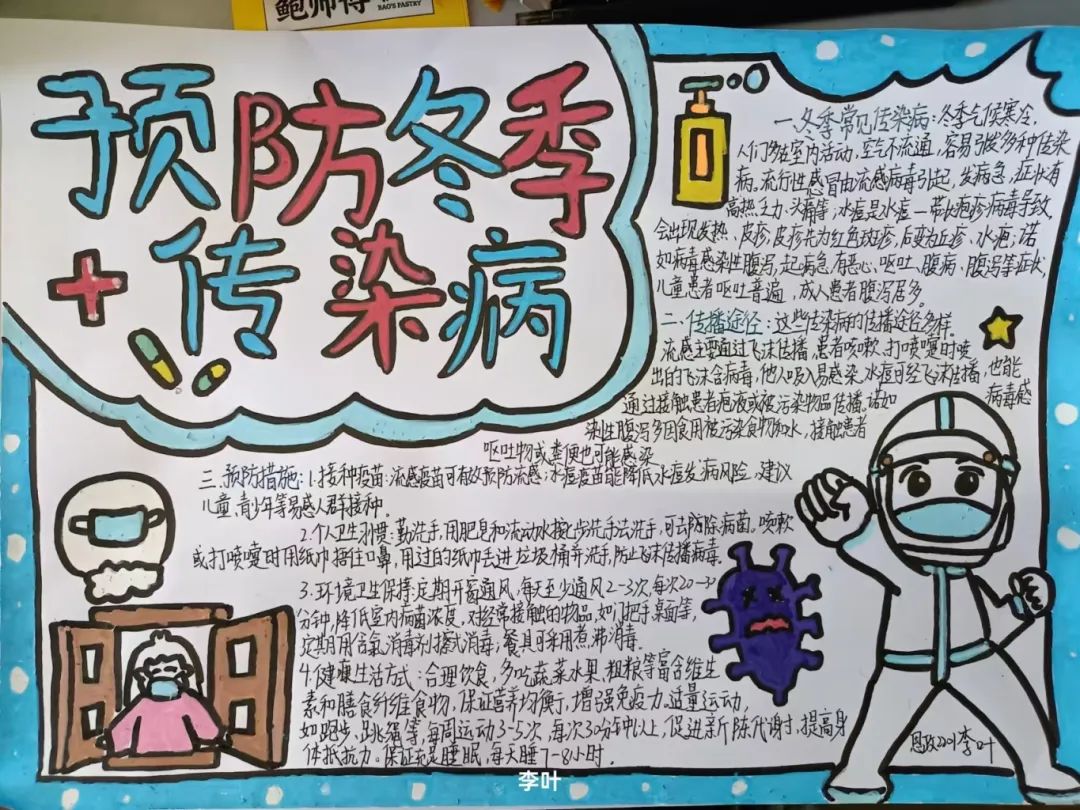 鲍师傅
BAO'S PASTRY
预防冬季
传染病
一.冬季常见传染病:冬季气候寒冷,
人们多在室内活动,空气不流通,容易引发多种传染
病。流行性感冒由流感病毒引起,发病急,症状有
高热乏力、头痛等;水痘是水痘一带状疱疹病毒导致,
会出现发热、皮疹,皮疹先为红色斑疹,后变为丘疹、水疱;诺
如病毒感染性腹泻,起病急,有恶心、呕吐、腹病、腹泻等症状,
儿童患者呕吐普遍,成人患者腹泻居多。
二.传播途径:这些传染病的传播途径多样。
流感主要通过飞沫传播,患者咳嗽、打喷嚏时喷
出的飞沫含病毒,他人吸入易感染。水痘可经飞沫传播,也能
通过接触患者疱液或被污染物品传播。诺如
病毒感
染性腹泻多因食用被污染食物和水,接触患者
呕吐物或粪便也可能感染
三.预防措施:1.接种疫苗:流感疫苗可有效预防流感,水痘疫苗能降低水痘发病风险,建议
儿童、青少年等易感人群接种。
2.个人卫生习惯:勤洗手,用肥皂和流动水按七步洗手法洗手,可去防除病菌。咳嗽
或打喷嚏时用纸巾捂住口鼻,用过的纸巾丢进垃圾桶并洗手,防止飞沫传播病毒。
3.环境卫生保持:定期开窗通风,每天至少通风2-3次,每次20-30
分钟,降低室内病菌浓度,对经常接触的物品,如门把手桌面等,
定期用含氯消毒剂擦式消毒,餐具可采用煮沸消毒。
4.健康生活方式:合理饮食,多吃蔬菜水果、粗粮等富含维生
素和膳食纤维食物,保证营养均衡,增强免疫力。适量运动,
如跑步、跳绳等,每周运动3-5次,每次30分钟以上,促进新陈代谢,提高身
体抵抗力。保证充足睡眠,每天睡7-8小时.
2201李叶
李叶